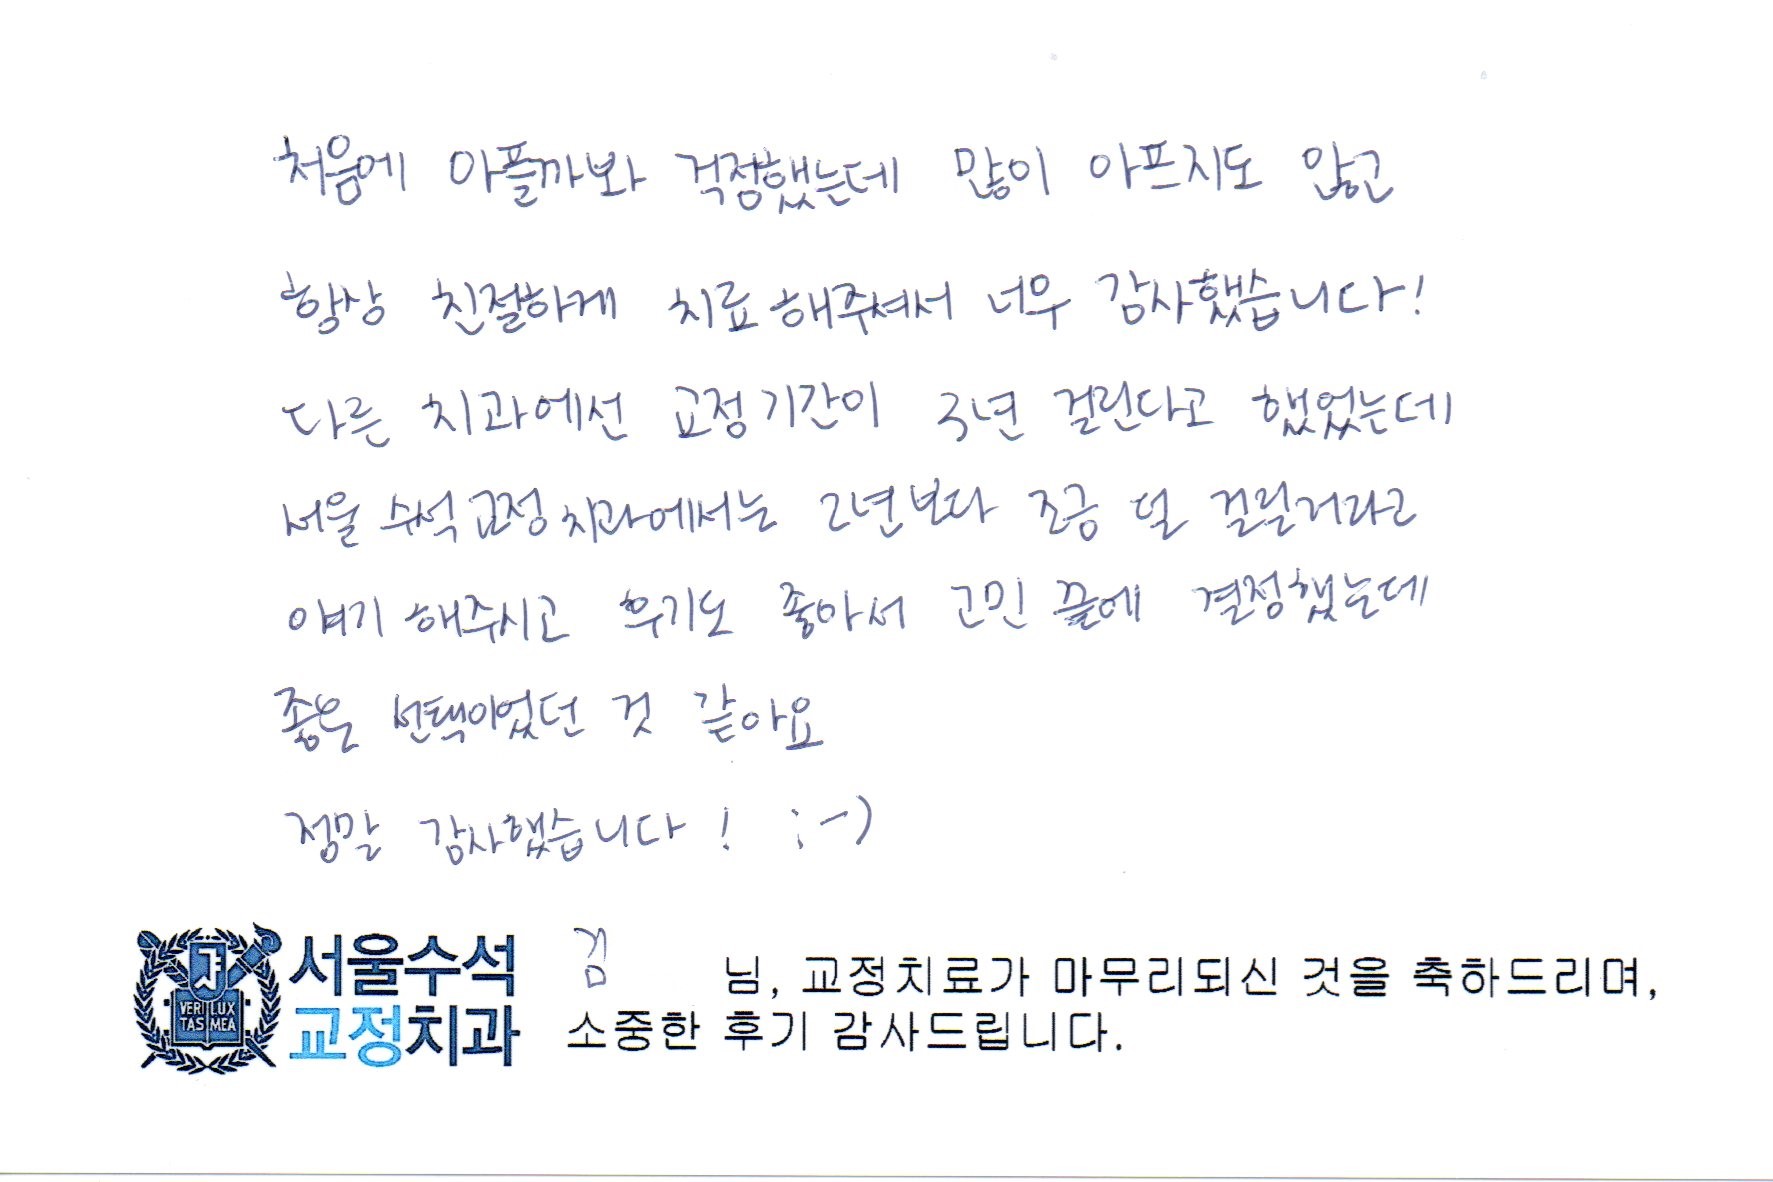 처음에 아플까봐 걱정했는데 많이 아프지도 않고
항상 친절하게 치료해주셔서 너무 감사했습니다!
다른 치과에선 교정기간이 3년 걸린다고 했었는데
서울 수석교정치과에서는 2년보다 조금 덜 걸릴거라고
얘기 해주시고 후기도 좋아서 고민 끝에 결정했는데
좋은 선택이었던 것 같아요
정말 감사했습니다! ;-)
VERI LUX
TAS MEA
서울수석
교정치과
김 님, 교정치료가 마무리되신 것을 축하드리며,
소중한 후기 감사드립니다.